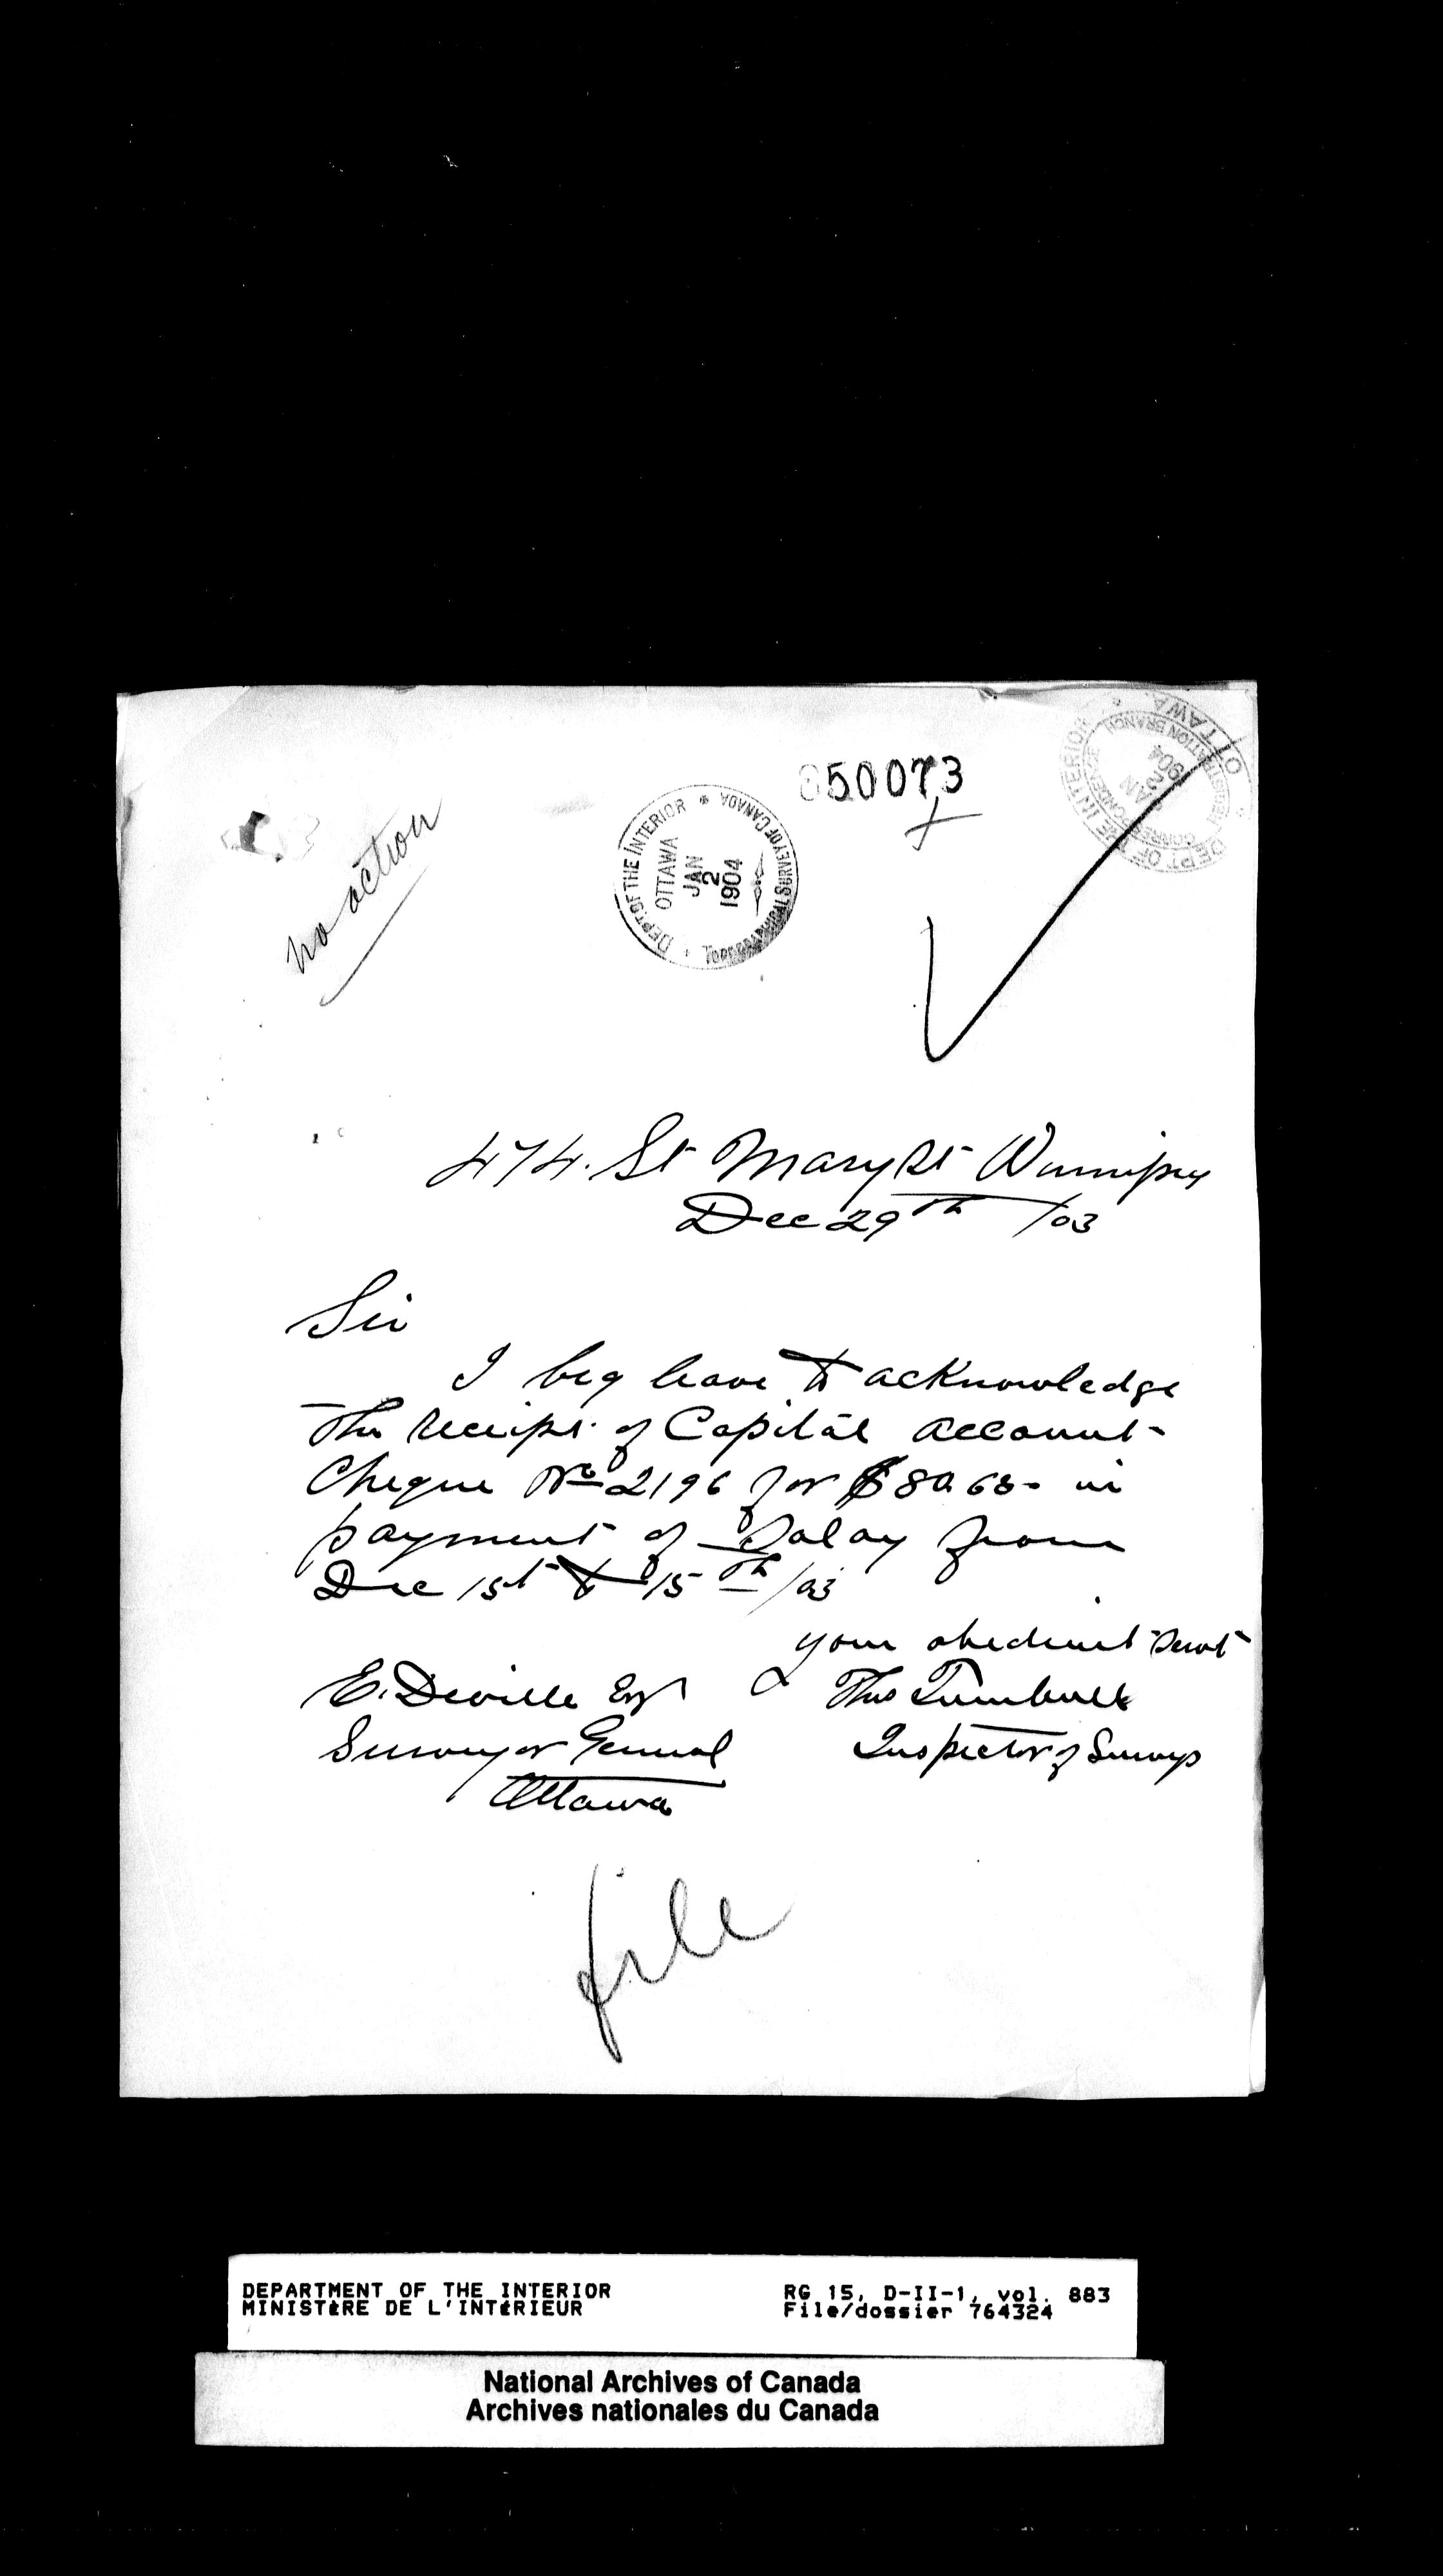 850073
DEPT OF THE INTERIOR * TOPOGRAPHICAL SURVEY OF CANADA *
OTTAWA
JAN
2
1904
DEPT OF THE INTERIOR * OTTAWA *
CORRESPONDENCE REGISTRATION BRANCH
JAN
2
1904
no action
474. St Mary St Winnipeg
Dec 29th /03
Sir
I beg leave to acknowledge
the receipt of Capital account
Cheque No 2196 for $80.65 in
payment of Salay from
Dec 1st to 15th /03
your obedient servt
E. Deville Esqr
Thos Turnbull
Surveyor General
Inspector of Surveys
Ottawa
file
DEPARTMENT OF THE INTERIOR
MINISTÈRE DE L'INTÉRIEUR
RG 15, D-II-1, vol. 883
File/dossier 764324
National Archives of Canada
Archives nationales du Canada